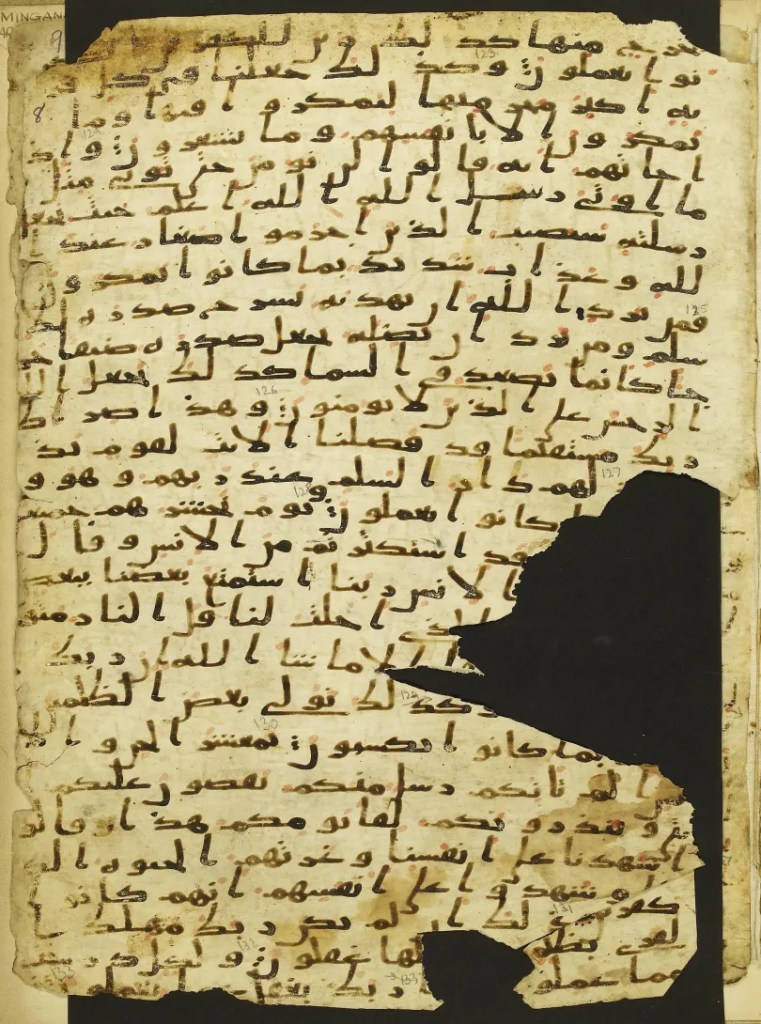 MINGAN
9
8
خرج منها كذلك زين للكفرين ما كا
نوا يعملون وكذلك جعلنا في كل قر
ية اكبر مجرميها ليمكروا فيها وما
يمكرون الا بانفسهم وما يشعرون واذ
ا جاتهم اية قالوا لن نومن حتى نوتى مثل
ما اوتي رسل الله الله اعلم حيث يجعل
رسلته سيصيب الذين اجرموا صغار عند ا
لله وعذاب شديد بما كانوا يمكرون
فمن يرد الله ان يهديه يشرح صدره للا
سلم ومن يرد ان يضله يجعل صدره ضيقا حر
جا كانما يصعد في السما كذلك يجعل الله
الرجس على الذين لا يومنون وهذا صرط
ربك مستقيما قد فصلنا الايت لقوم يذ
لهم دار السلم عند ربهم وهو و
كانوا يعملون ويوم يحشرهم جميعا
قد استكثرتم من الانس وقال
الانس ربنا استمتع بعضنا ببعض
الذي اجلت لنا قال النار مثو
الا ما شا الله ان ربك
وكذلك نولي بعض الظلمين
بما كانوا يكسبون يمعشر الجن والا
الم ياتكم رسل منكم يقصون عليكم
وينذرونكم لقا يومكم هذا قالوا
شهدنا على انفسنا وغرتهم الحيوة الد
وشهدوا على انفسهم انهم كانوا
كفرين ذلك ان لم يكن ربك مهلك ا
لقرى بظلم واهلها غفلون ولكل درجت
مما عملوا ربك بغفل عما يعملون